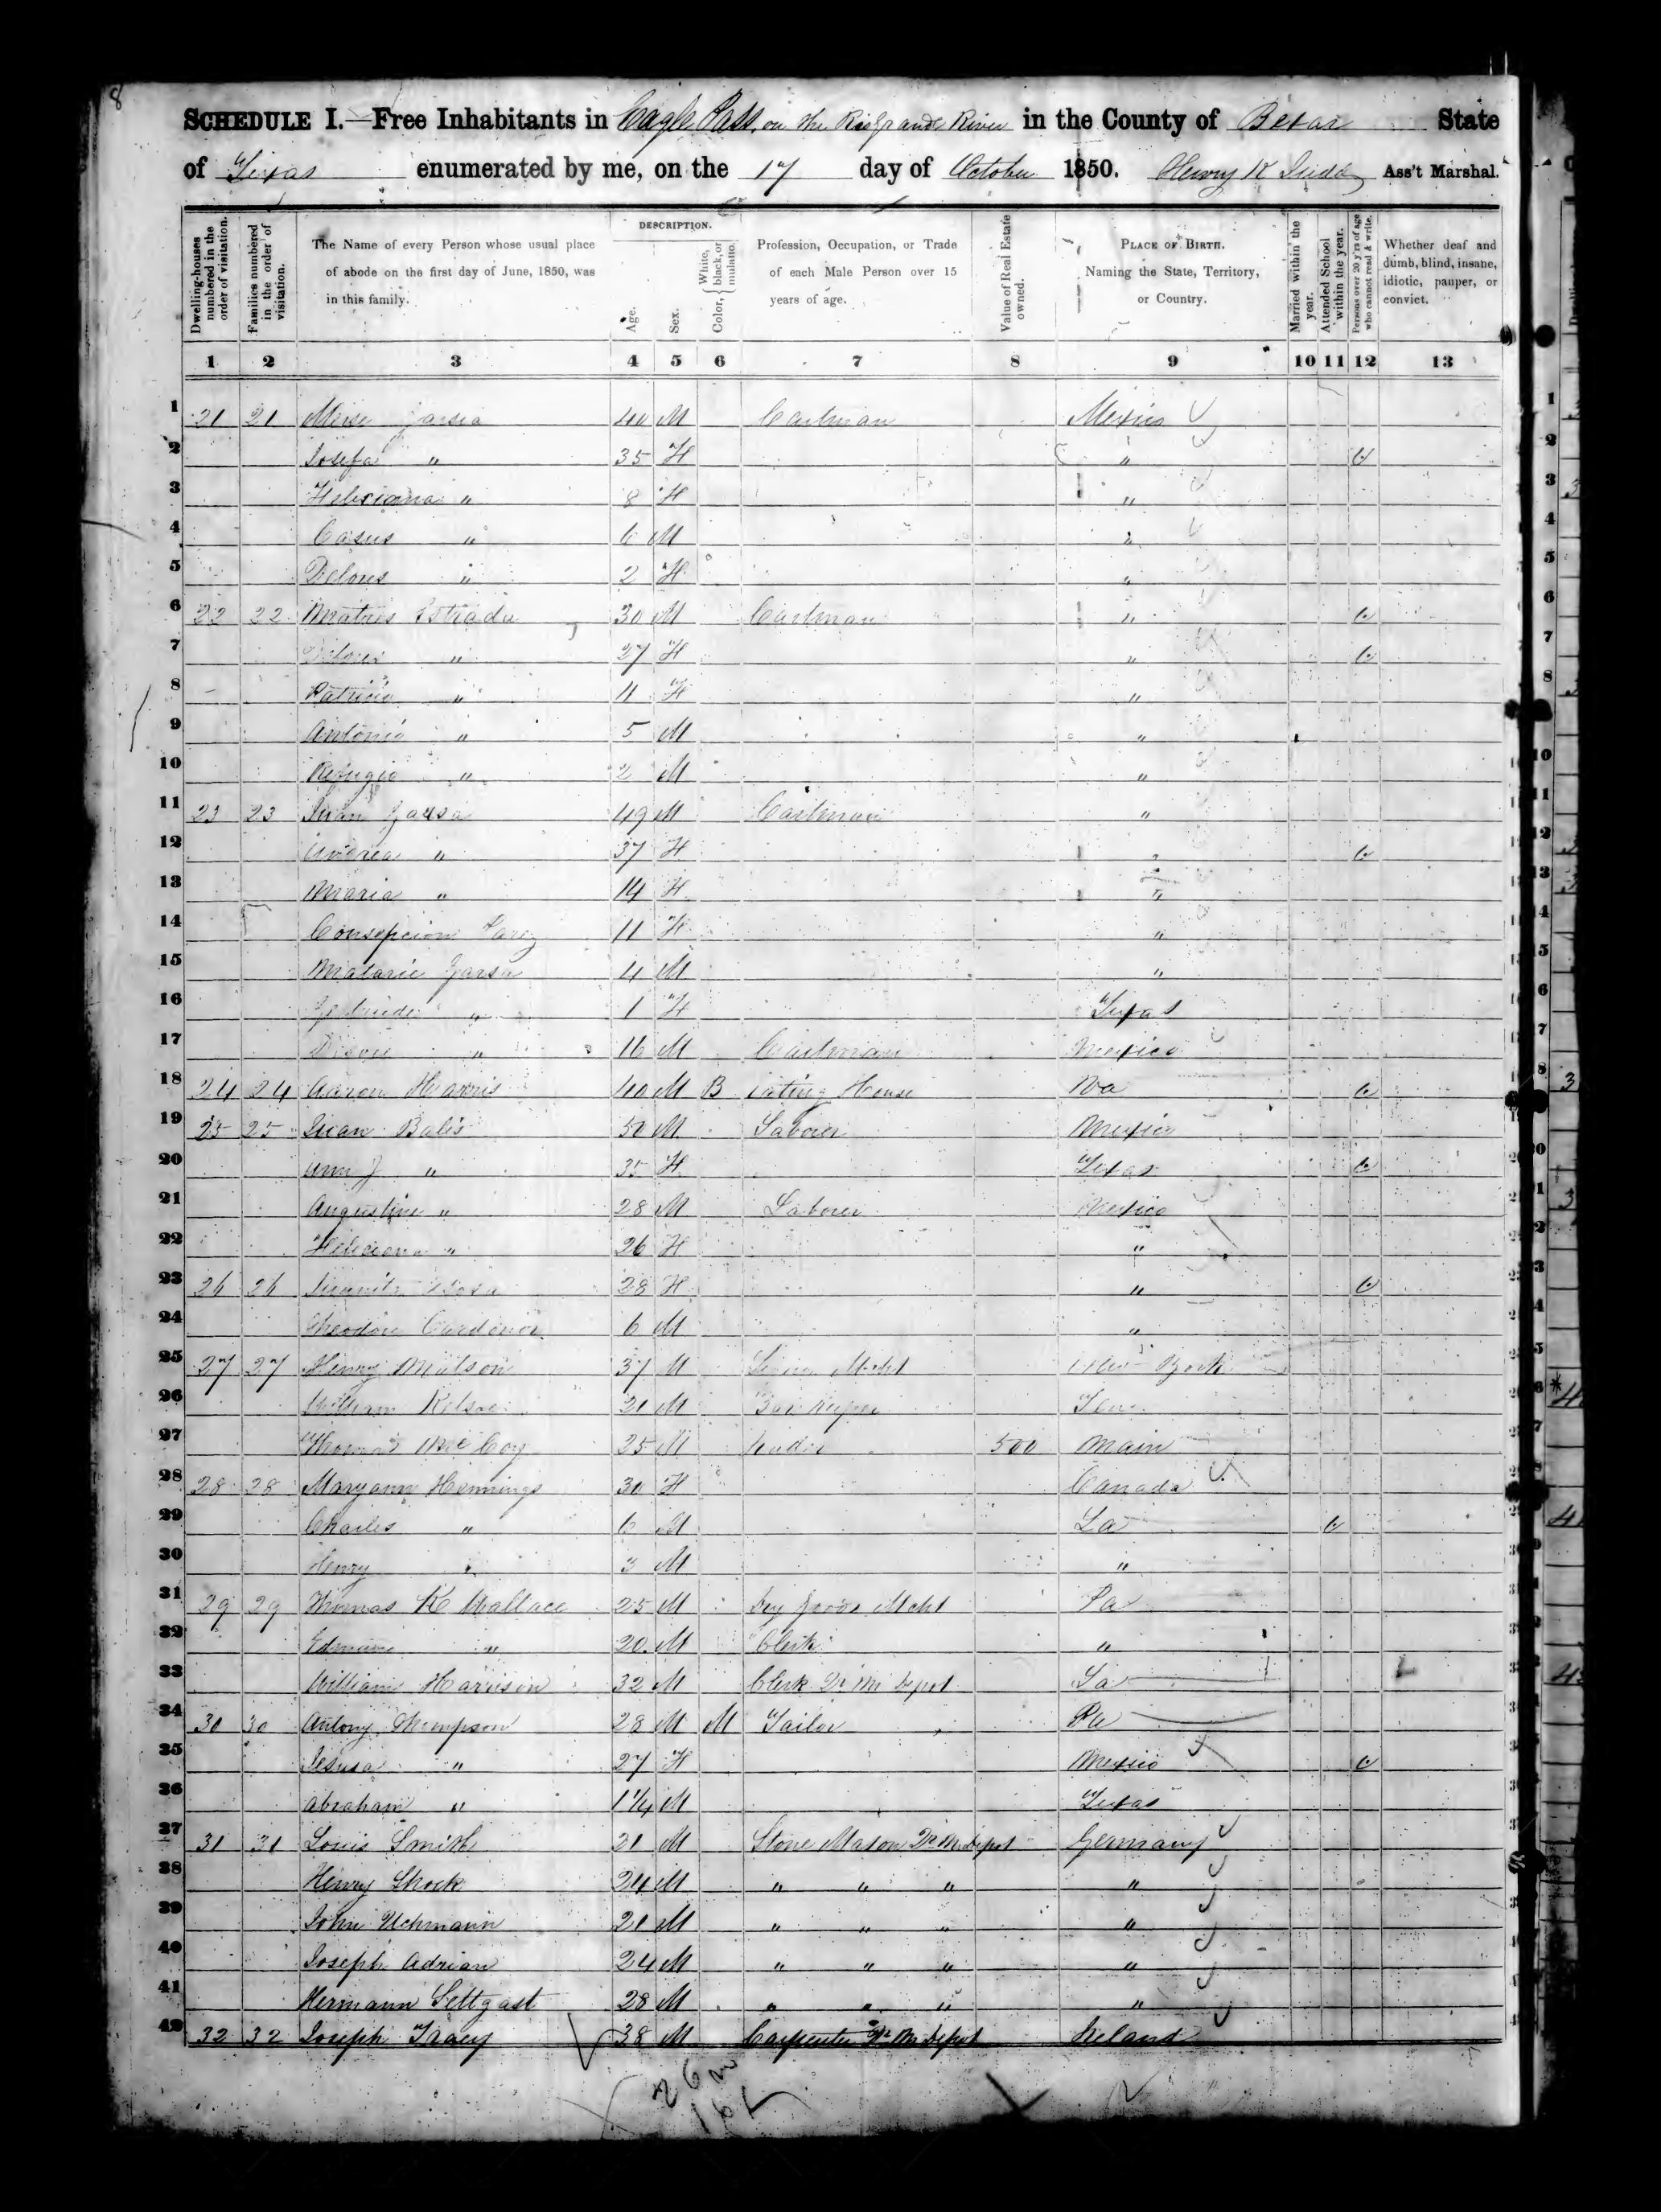 8
SCHEDULE I.—Free Inhabitants in Eagle Pass, on the Rio Grande River in the County of Bexar State
of Texas enumerated by me, on the 17 day of October 1850. Henry K Ass't Marshal.
Dwelling-houses numbered in the order of visitation.
Families numbered in the order of visitation.
The Name of every Person whose usual place of abode on the first day of June, 1850, was in this family.
DESCRIPTION.
Age.
Sex.
Color, { White, black, or mulatto.
Profession, Occupation, or Trade of each Male Person over 15 years of age.
Value of Real Estate owned.
PLACE OF BIRTH. Naming the State, Territory, or Country.
Married within the year.
Attended School within the year.
Persons over 20 y'rs of age who cannot read & write.
Whether deaf and dumb, blind, insane, idiotic, pauper, or convict.
1 2 3 4 5 6 7 8 9 10 11 12 13
1 21 21 Garsia 40 M Cartman Mexico
2 Josefa " 35 F "
3 Feliciana " 8 F "
4 Casus " 6 M "
5 Delores " 2 F "
6 22 22 Estrada 30 M Cartman "
7 Delores " 27 F "
8 Patricia " 11 F "
9 Antonio " 5 M "
10 Refugio " 2 M "
11 23 23 Juan Garsa 49 M Cartman "
12 Andrea " 37 F "
13 Maria " 14 F "
14 Consepcion 11 F "
15 Garsa 4 M "
16 " 1 F Texas
17 " 16 M Cartman Mexico
18 24 24 Aaron Harris 40 M B Eating House Va
19 25 25 Juan Balis 50 M Laborer Mexico
20 Ann J " 35 F Texas
21 Augustine " 28 M Laborer Mexico
22 Feliciana " 26 F "
23 26 26 28 F "
24 Theodore 6 M "
25 27 27 Henry Matson 37 M Mcht New York
26 William 21 M Bar Keeper
27 Thomas McCoy 25 M 500 Main
28 28 28 Maryann Hennings 30 F Canada
29 Charles " 6 M La
30 Henry " 3 M "
31 29 29 Thomas K Wallace 25 M Dry Goods Mcht Pa
32 " 20 M Clerk "
33 William Harrison 32 M Clerk Qr Mr Depot La
34 30 30 Antony Thompson 28 M M Tailor Pa
35 Jesusa " 27 F Mexico
36 Abraham " 1 1/4 M Texas
37 31 31 Louis Smith 21 M Stone Mason Qr Mr Depot Germany
38 Henry Shock 24 M " " " "
39 John Uchmann 21 M " " " "
40 Joseph Adrian 24 M " " " "
41 Hermann Settgast 28 M " " " "
42 32 32 Joseph Tracy 38 M Carpenter Qr Mr Depot Ireland